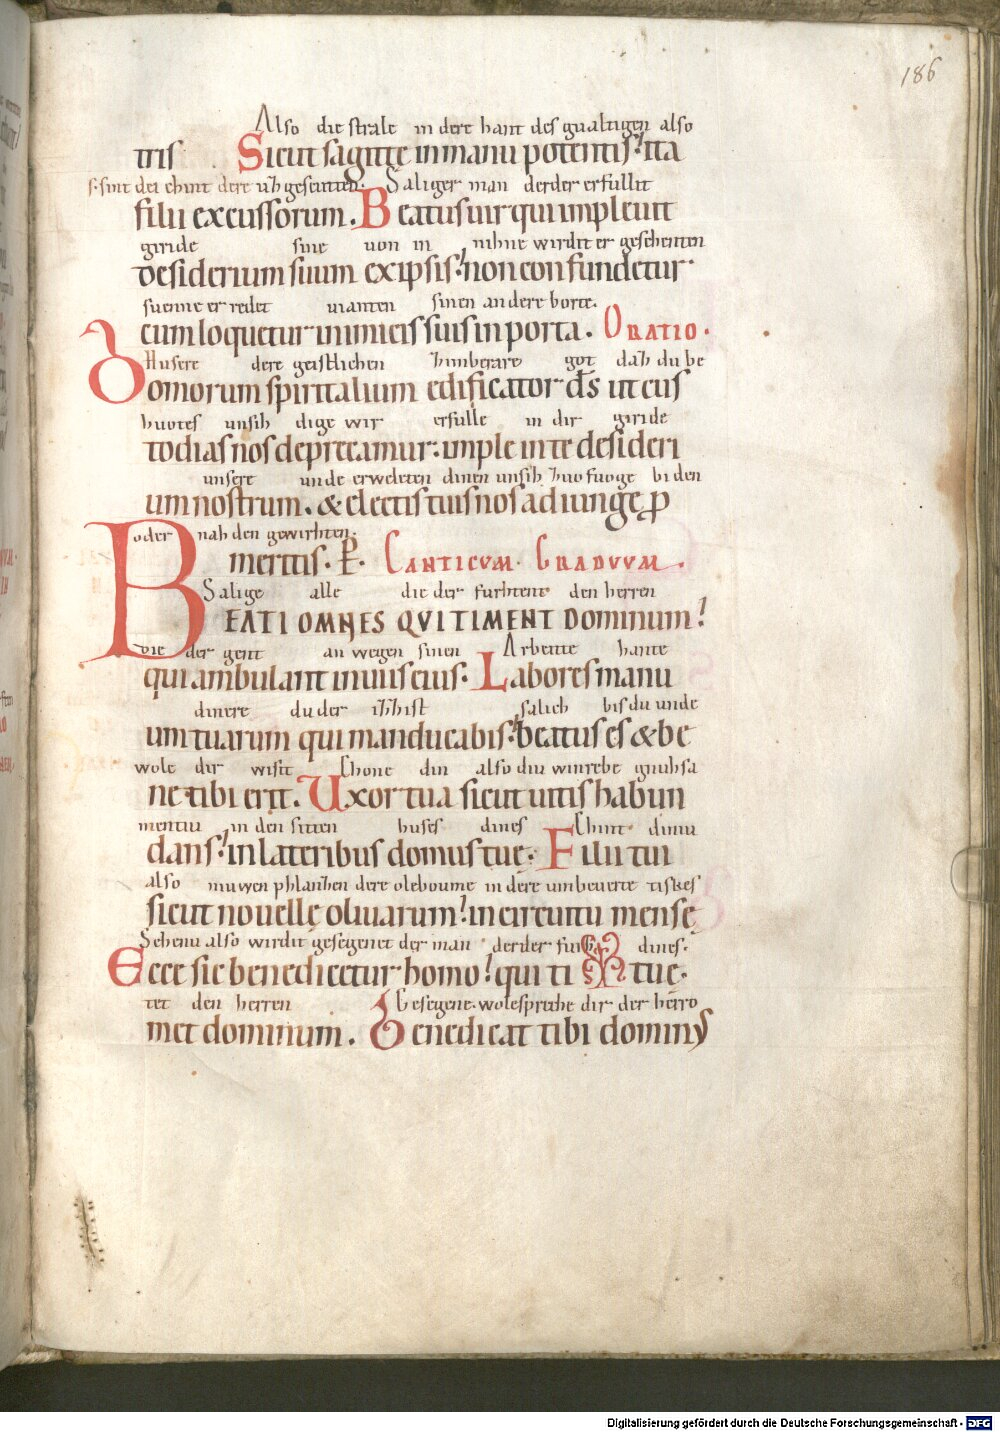 186
Also die strale in dere hant des gualtigen also
tris Sicut sagittę in manu potentis: ita
s. sint dei chint dere uh gescutten. Saliger man derder erfullit
filii excussorum. Beatus uir qui impleuit
giride sine uon in nihne wirdit er geschenten
desiderium suum ex ipsis: non confundetur
suenne er redet uianten sinen an dere borte.
cum loquetur inimicis suis in porta. ORATIO.
Husere dere geistlichen zimberare got daz du be
Domorum spiritalium edificator ds ut cus
huotes unsih dige wir erfulle in dir giride
todias nos deprecamur: imple in te desideri
unsere unde erweleten dinen unsih zuo fuoge bi den
um nostrum. & electis tuis nos adiunge p
oder nah den gewirhten.
meritis. P. CANTICVM GRADVVM.
Salige alle die der furhtent den herren
BEATI OMNES QVI TIMENT Dominum:
die der gent an wegen sinen Arbeite hante
qui ambulant in uiis eius. Labores manu
dinere du der izzist salich bis du unde
um tuarum qui manducabis: beatus es & be
wole dir wisit Chone din also diu winrebe gnuhsa
ne tibi erit. Uxor tua sicut uitis habun
mentiu in den sitten huses dines Chint diniu
dans: in lateribus domus tuę. Filii tui
also niuwen phlanzen dere oleboume in dere umbeuerte tiskes
sicut nouellę oliuarum: in circuitu mensę
Sehenu also wirdit gesegenet der man derder furh dines.
Ecce sic benedicetur homo: qui ti tuę.
tet den herren Gesegene. wolesprehe dir der herro
met dominum. Benedicat tibi dominus
Digitalisierung gefördert durch die Deutsche Forschungsgemeinschaft - DFG